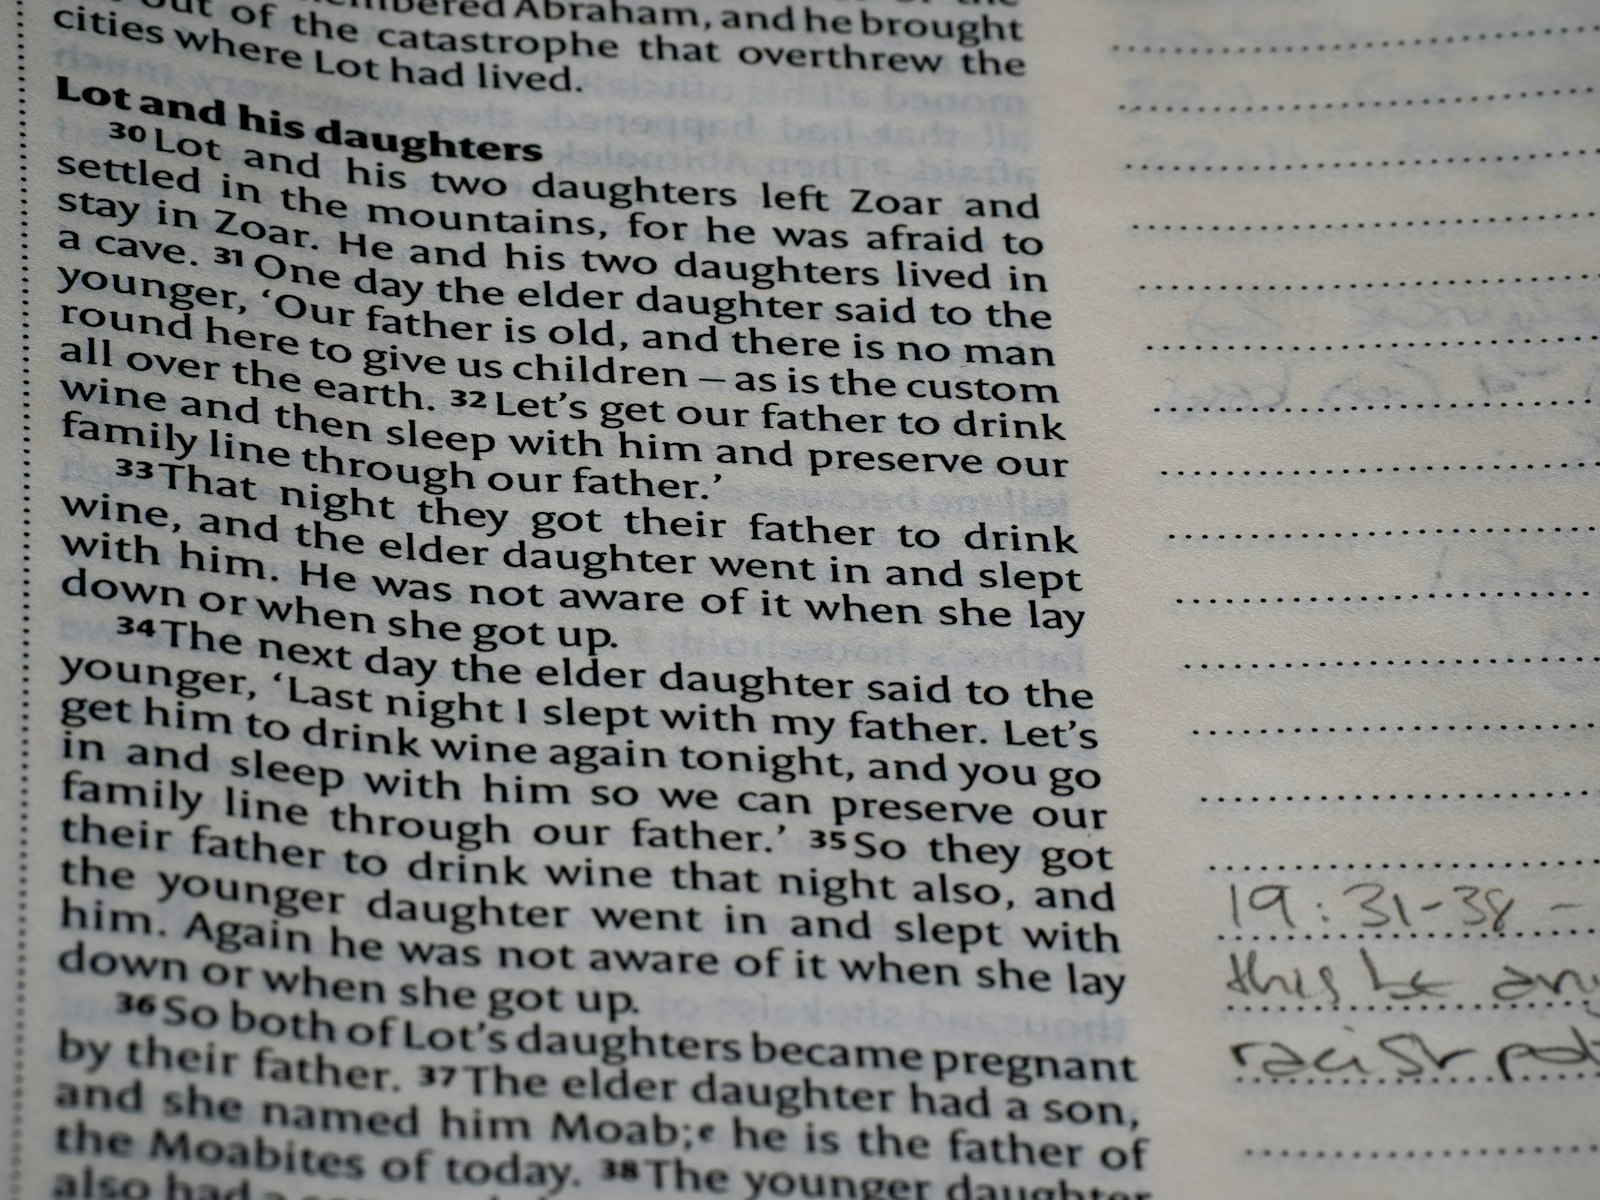 out of the
embered Abraham, and he brought
out of the catastrophe that overthrew the
cities where Lot had lived.
Lot and his daughters
30 Lot and his two daughters left Zoar and
settled in the mountains, for he was afraid to
stay in Zoar. He and his two daughters lived in
a cave. 31 One day the elder daughter said to the
younger, ‘Our father is old, and there is no man
round here to give us children – as is the custom
all over the earth. 32 Let’s get our father to drink
wine and then sleep with him and preserve our
family line through our father.’
33 That night they got their father to drink
wine, and the elder daughter went in and slept
with him. He was not aware of it when she lay
down or when she got up.
34 The next day the elder daughter said to the
younger, ‘Last night I slept with my father. Let’s
get him to drink wine again tonight, and you go
in and sleep with him so we can preserve our
family line through our father.’ 35 So they got
their father to drink wine that night also, and
the younger daughter went in and slept with
him. Again he was not aware of it when she lay
down or when she got up.
36 So both of Lot’s daughters became pregnant
by their father. 37 The elder daughter had a son,
and she named him Moab;e he is the father of
the Moabites of today. 38 The younger daughter
also had a
19:31-38 -
this be
racist